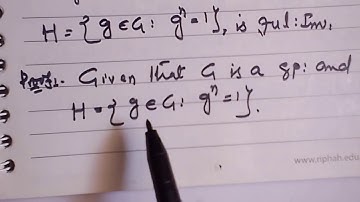 H = { g ∈ G : gⁿ = 1 }, is ful: Inv.
Proof:- Given that G is a gp: and
H = { g ∈ G : gⁿ = 1 }.
www.riphah.edu